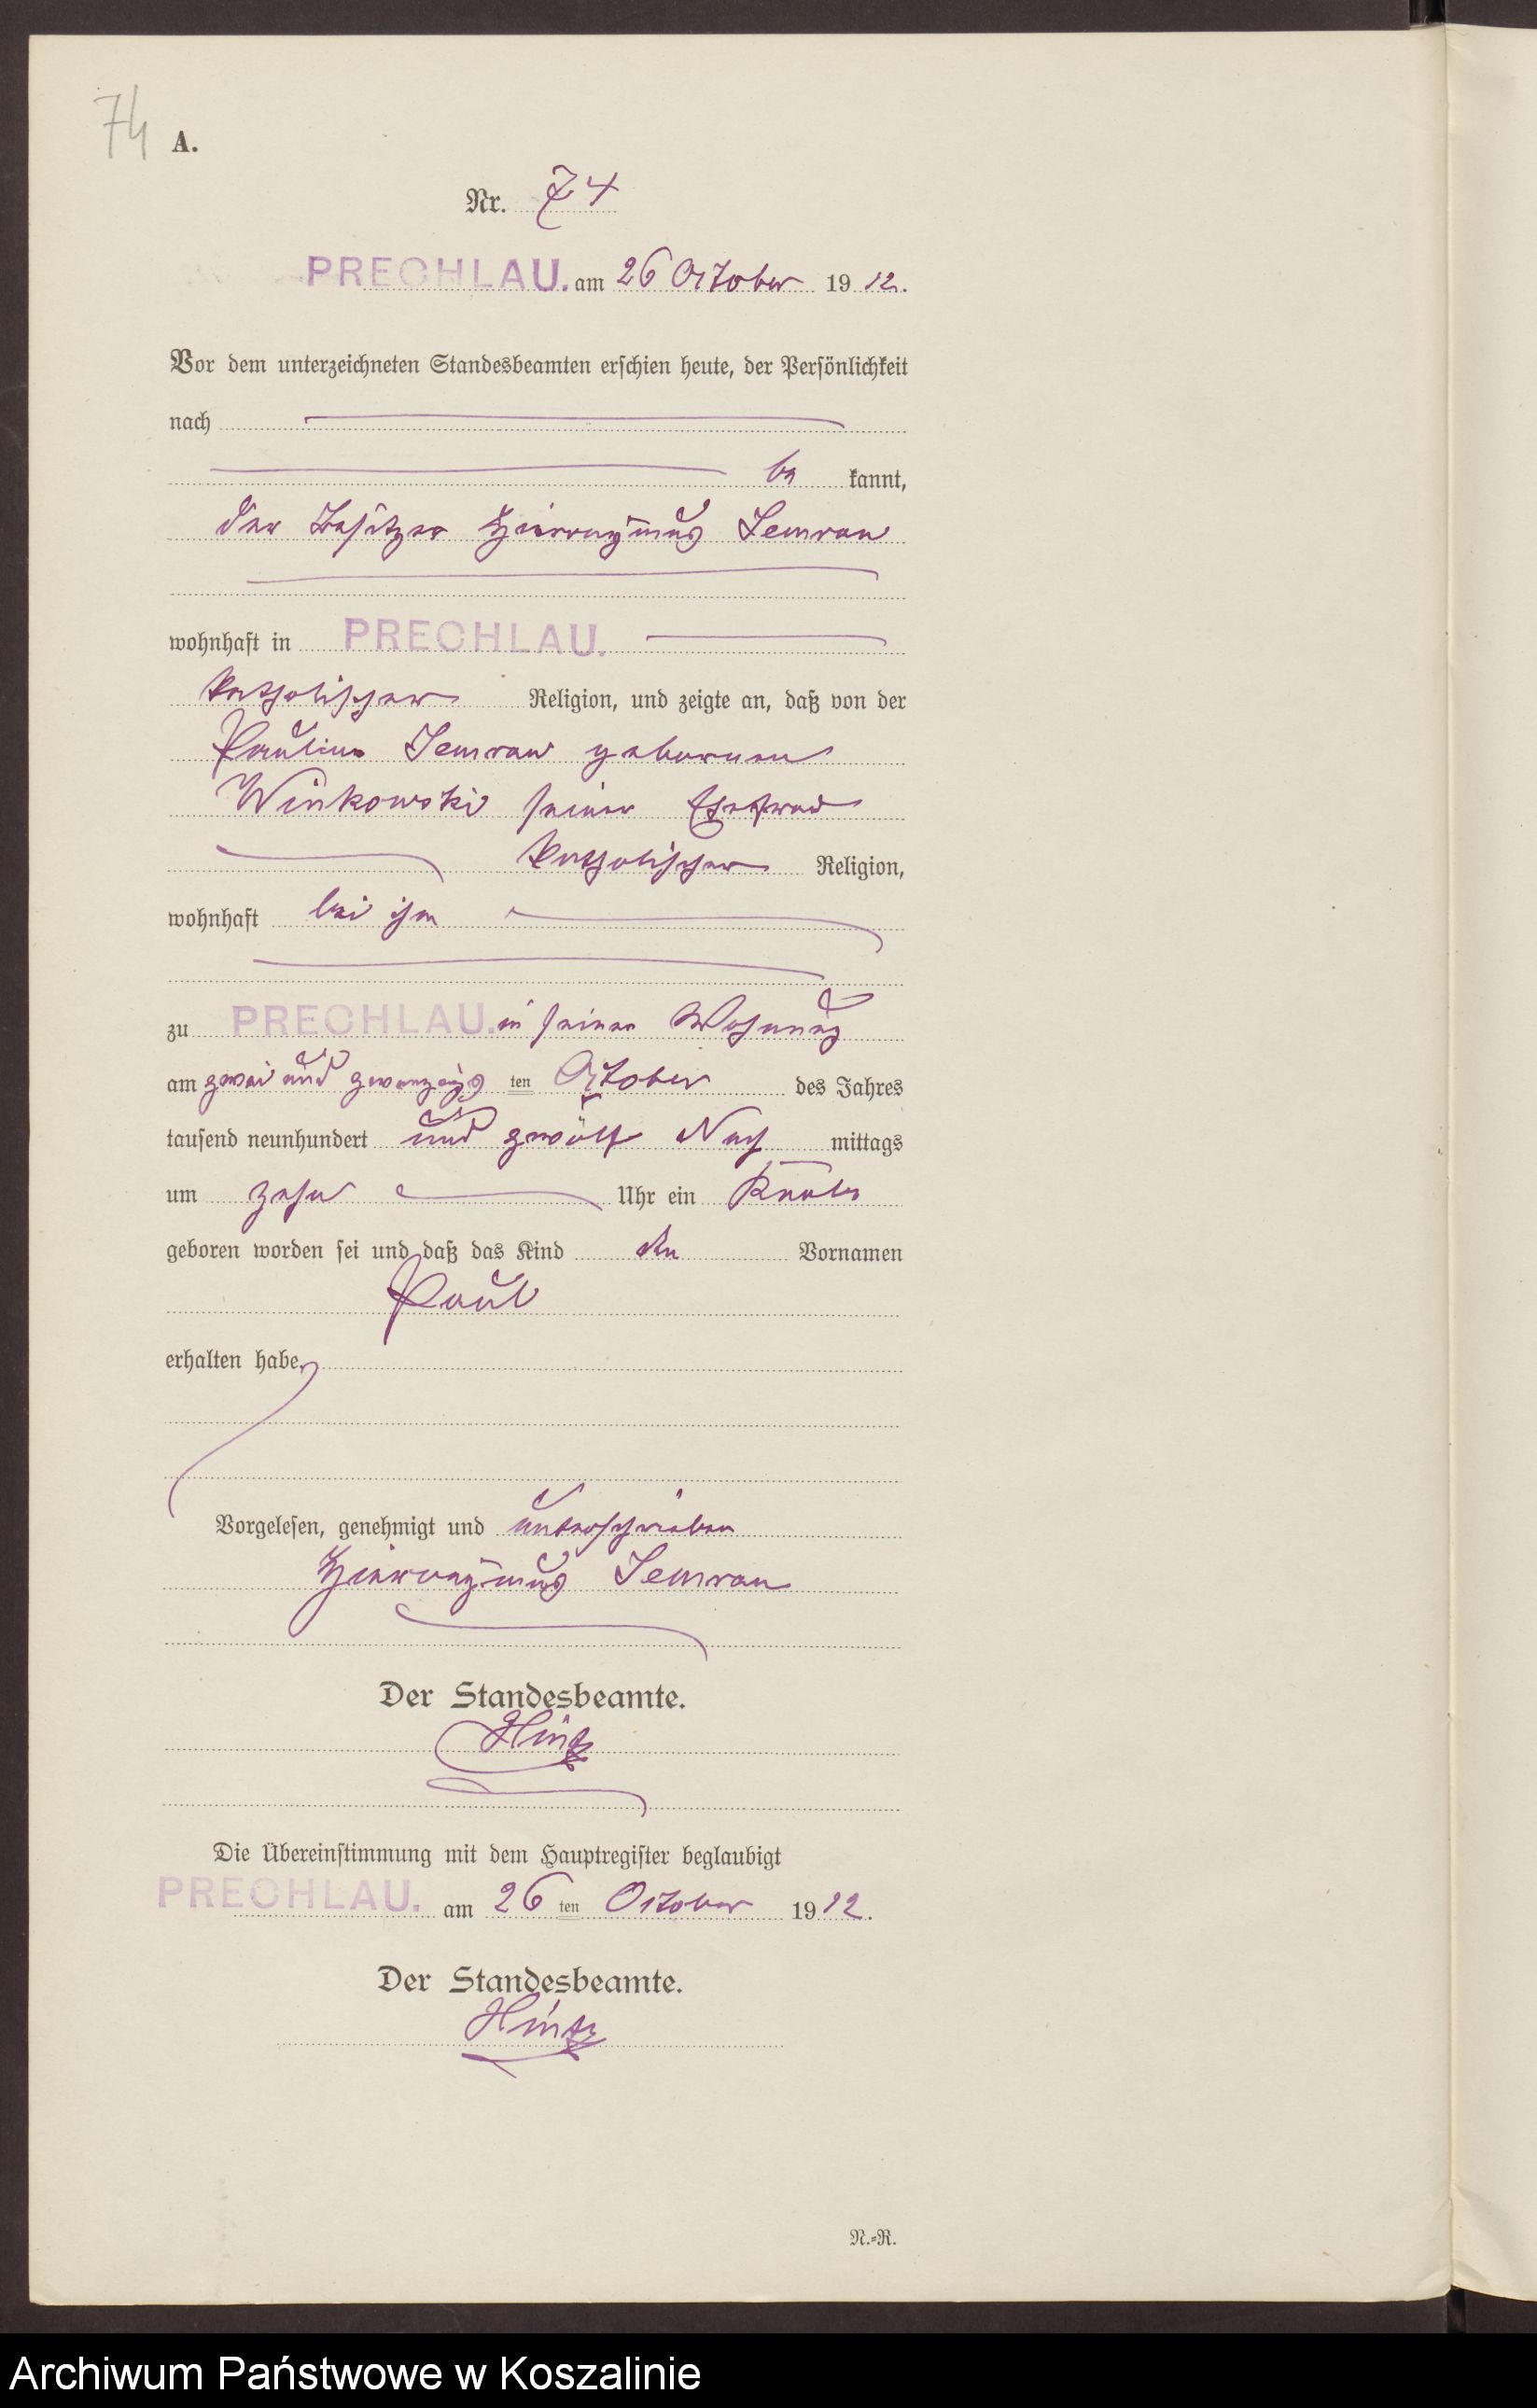 74
A.
Nr. 74
PRECHLAU. am 26 October 1912.
Vor dem unterzeichneten Standesbeamten erschien heute, der Persönlichkeit
nach
be kannt,
der Besitzer Hieronymus Semrau
wohnhaft in PRECHLAU.
katholischer Religion, und zeigte an, daß von der
Pauline Semrau geborenen
Winkowski seiner Ehefrau
katholischer Religion,
wohnhaft bei ihm
zu PRECHLAU. in seiner Wohnung
am zwei und zwanzigsten October des Jahres
tausend neunhundert und zwölf Nach mittags
um zehn Uhr ein Knabe
geboren worden sei und daß das Kind den Vornamen
Paul
erhalten habe.
Vorgelesen, genehmigt und unterschrieben
Hieronymus Semrau
Der Standesbeamte.
Hintz
Die Übereinstimmung mit dem Hauptregister beglaubigt
PRECHLAU. am 26 ten October 1912.
Der Standesbeamte.
Hintz
N.=R.
Archiwum Państwowe w Koszalinie